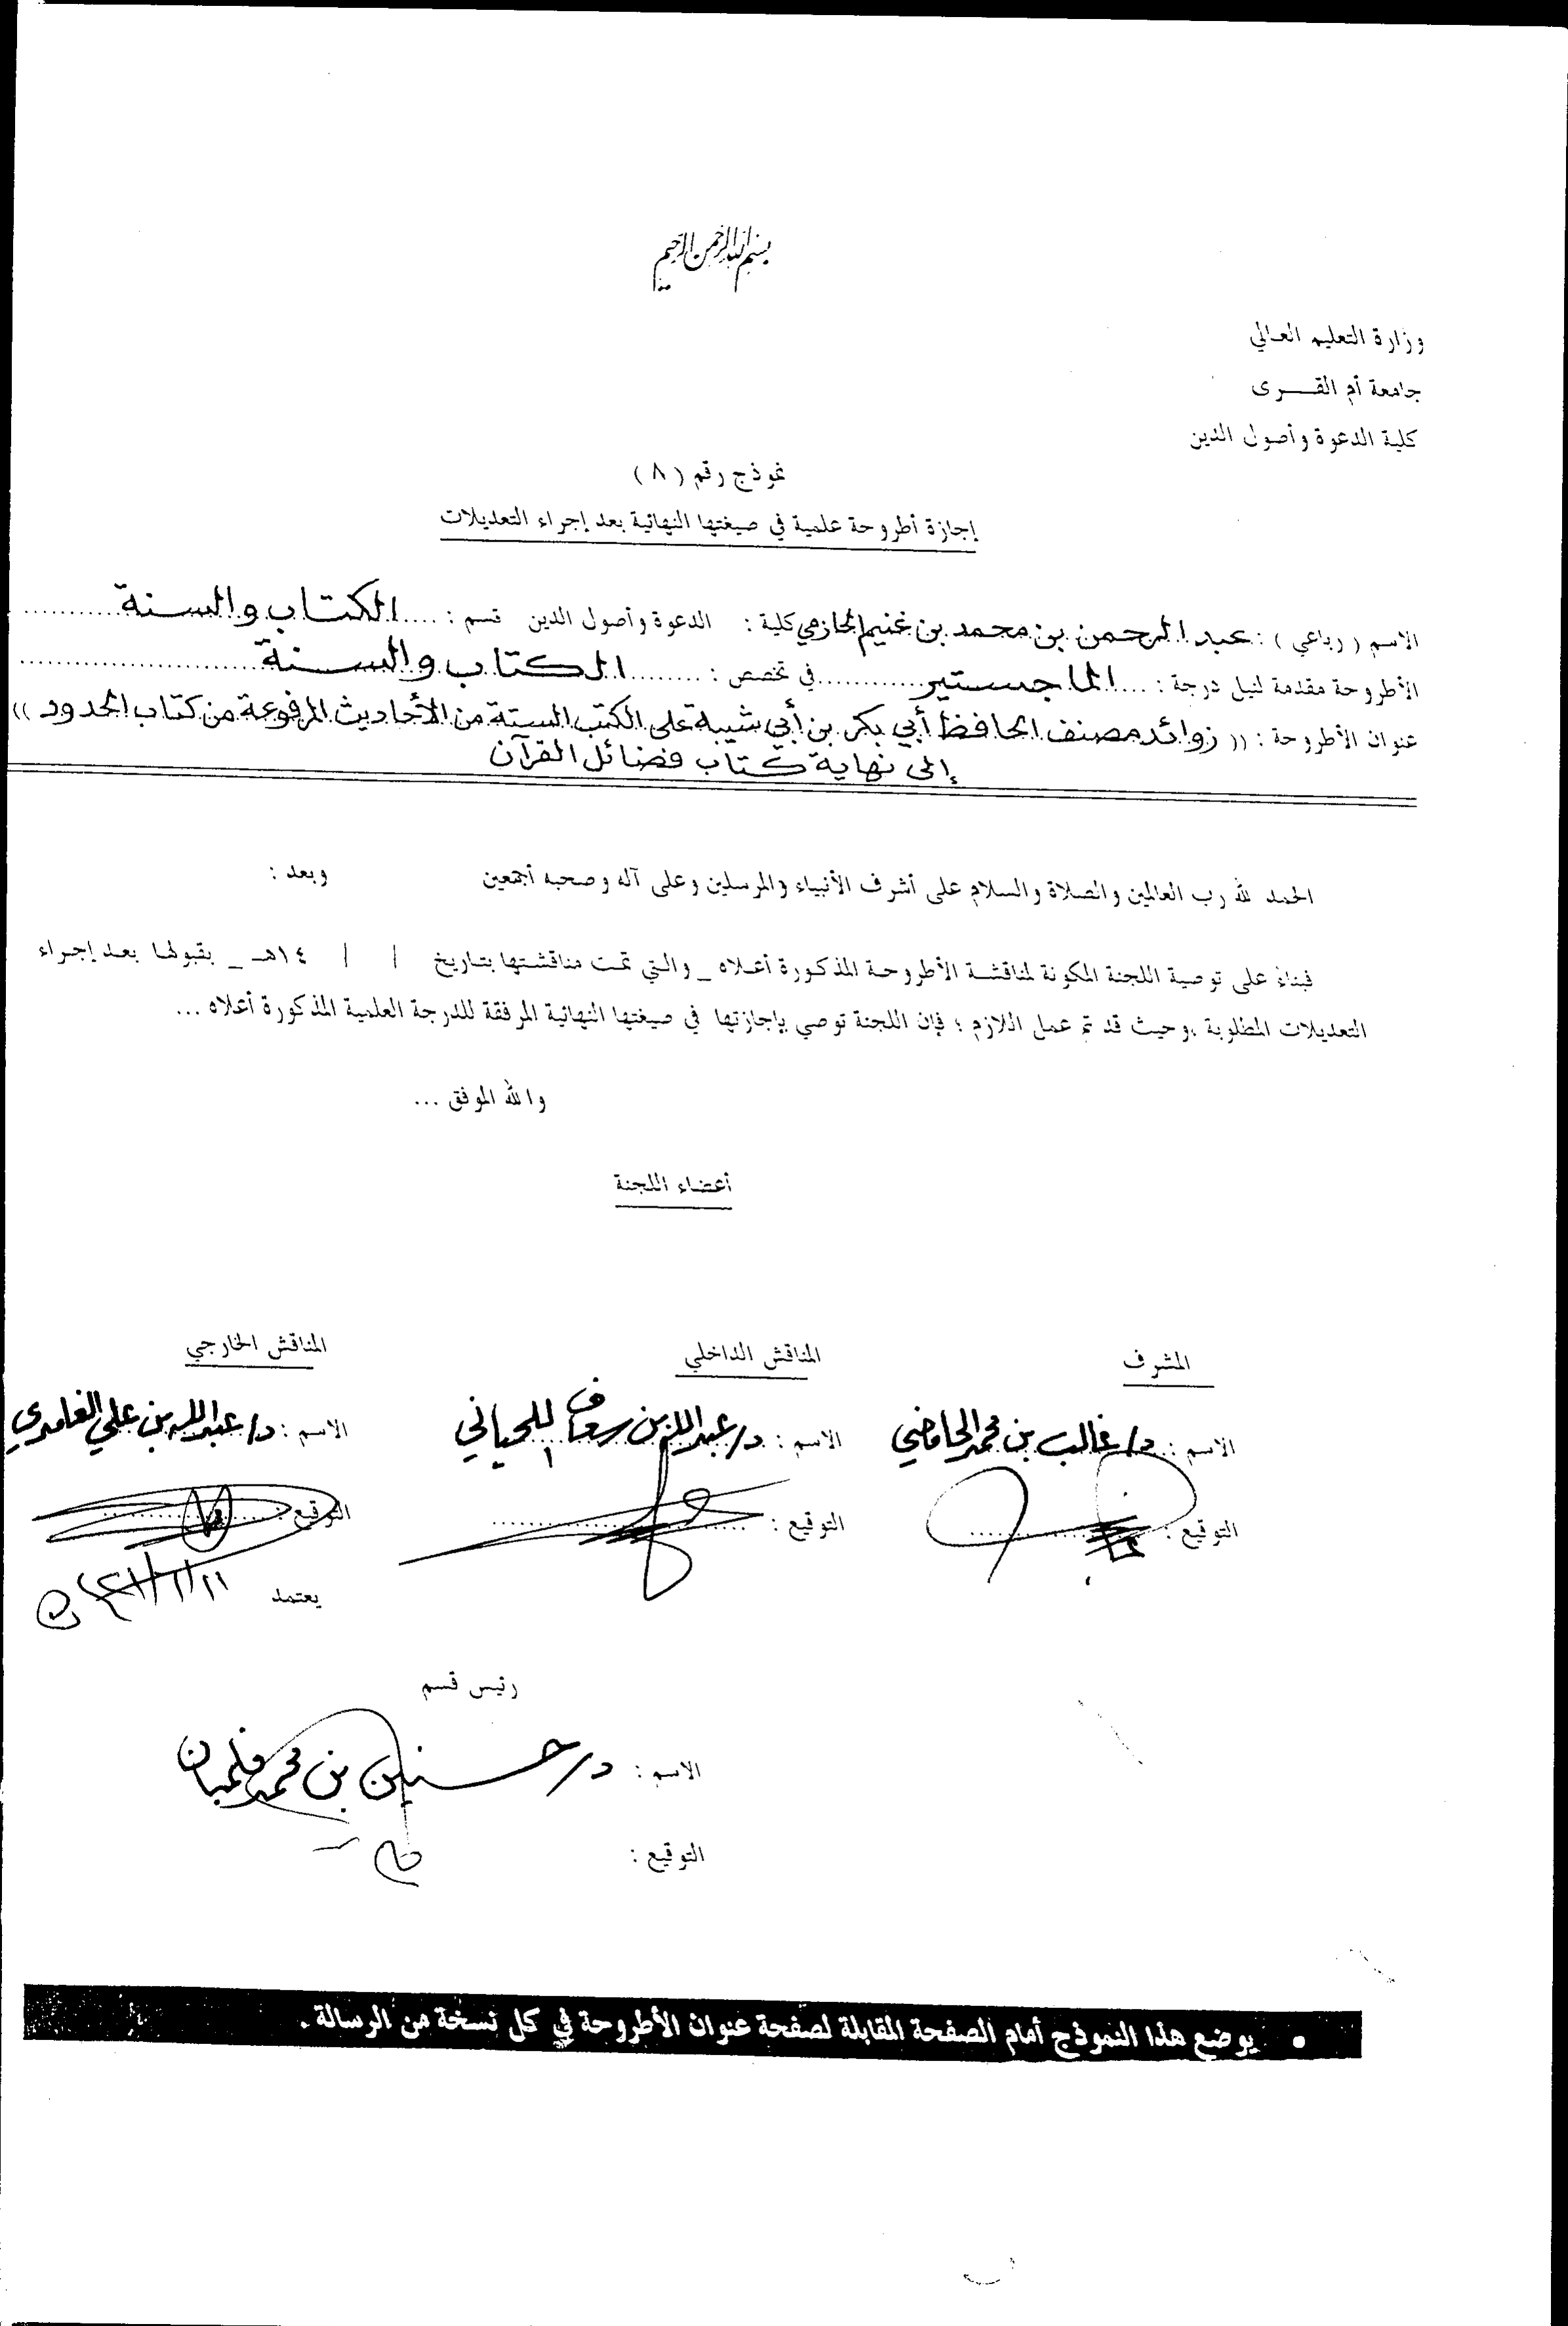 بسم الله الرحمن الرحيم
وزارة التعليم العالي
جامعة أم القـــــرى
كلية الدعوة وأصول الدين
نموذج رقم ( ٨ )
إجازة أطروحة علمية في صيغتها النهائية بعد إجراء التعديلات
الاسم ( رباعي ) : عبد الرحمن بن محمد بن غنيم الحازمي كلية : الدعوة وأصول الدين قسم : الكتاب والسنة
الأطروحة مقدمة لنيل درجة : الماجستير في تخصص : الكتاب والسنة
عنوان الأطروحة : (( زوائد مصنف الحافظ أبي بكر بن أبي شيبة على الكتب الستة من الأحاديث المرفوعة من كتاب الحدود ))
إلى نهاية كتاب فضائل القرآن
الحمد لله رب العالمين والصلاة والسلام على أشرف الأنبياء والمرسلين وعلى آله وصحبه أجمعين وبعد :
فبناءً على توصية اللجنة المكونة لمناقشة الأطروحة المذكورة أعلاه _ والتي تمت مناقشتها بتاريخ / / ١٤هـ _ بقبولها بعد إجراء
التعديلات المطلوبة ، وحيث قد تم عمل اللازم ؛ فإن اللجنة توصي بإجازتها في صيغتها النهائية المرفقة للدرجة العلمية المذكورة أعلاه ...
والله الموفق ...
أعضاء اللجنة
المشرف المناقش الداخلي المناقش الخارجي
الاسم : د/ غالب بن محمد الحامضي الاسم : د/ عبد الله بن سعاف اللحياني الاسم : د/ عبد الله بن علي الغامدي
التوقيع : التوقيع : التوقيع :
يعتمد
رئيس قسم
الاسم : د/ حسنين بن محمد فلمبان
التوقيع :
• يوضع هذا النموذج أمام الصفحة المقابلة لصفحة عنوان الأطروحة في كل نسخة من الرسالة .